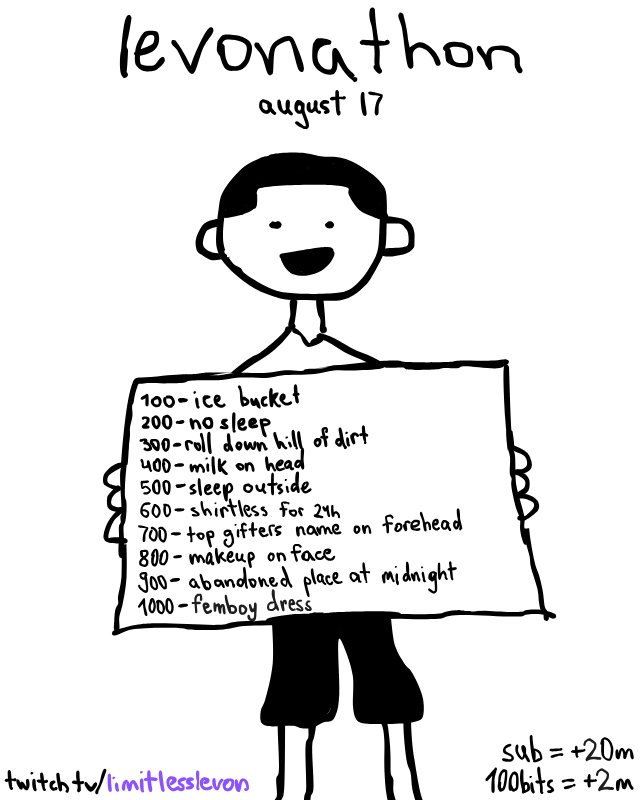 levonathon
august 17
100-ice bucket
200-no sleep
300-roll down hill of dirt
400-milk on head
500-sleep outside
600-shirtless for 24h
700-top gifters name on forehead
800-makeup on face
900-abandoned place at midnight
1000-femboy dress
sub = +20m
twitch.tv/limitlesslevon
100bits = +2m